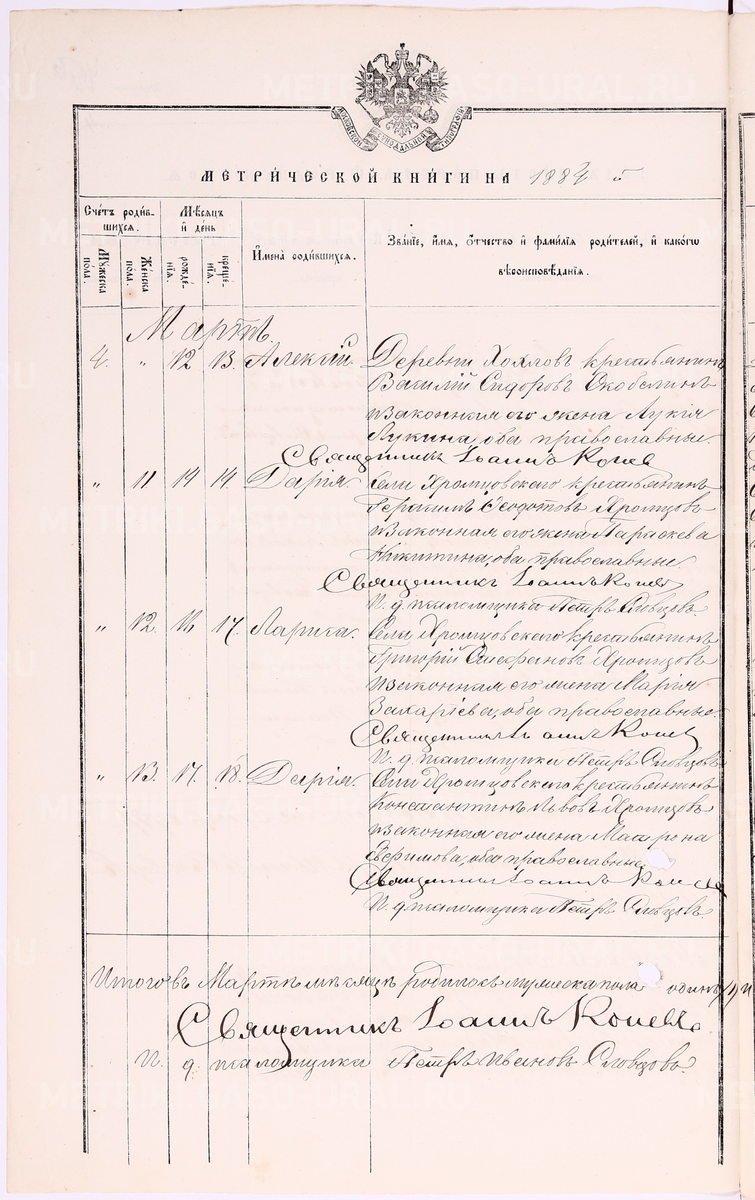 МЕТРИЧЕСКОЙ КНИГИ НА 1884 й
Счетъ родив-
шихся.
Мѣсяцъ
и день
Имена родившихся.
Званіе, имя, отчество и фамилія родителей, и какого
вѣроисповѣданія.
Мужеска
пола.
Женска
пола.
рожде-
нія.
креще-
нія.
Мартъ
4. " 12 13. Алексій. Деревни Хохловъ крестьянинъ
Василій Сидоровъ Скобелинъ
и законная его жена Лукія
Лукина, оба православные.
Священникъ Іоаннъ Коневъ
" 11 14 14. Дарія. Села Хромцовскаго крестьянинъ
Герасимъ Ѳеодотовъ Хромцовъ
и законная его жена Параскева
Никитина, оба православные.
Священникъ Іоаннъ Коневъ
И. д. псаломщика Петръ Словцовъ.
" 12. 16 17. Лариса. Села Хромцовскаго крестьянинъ
Григорій Стефановъ Хромцовъ
и законная его жена Марія
Захаріева, оба православные.
Священникъ Іоаннъ Коневъ
И. д. псаломщика Петръ Словцовъ
" 13. 17. 18. Дарія. Села Хромцовскаго крестьянинъ
Константинъ Львовъ Хромцовъ
и законная его жена Матрона
Ефимова, оба православные.
Священникъ Іоаннъ Коневъ
И. д. псаломщика Петръ Словцовъ.
Итого въ Мартѣ мѣсяцѣ родилось мужеска пола одинъ
Священникъ Іоаннъ Коневъ.
И. д. псаломщика Петръ Ивановъ Словцовъ.